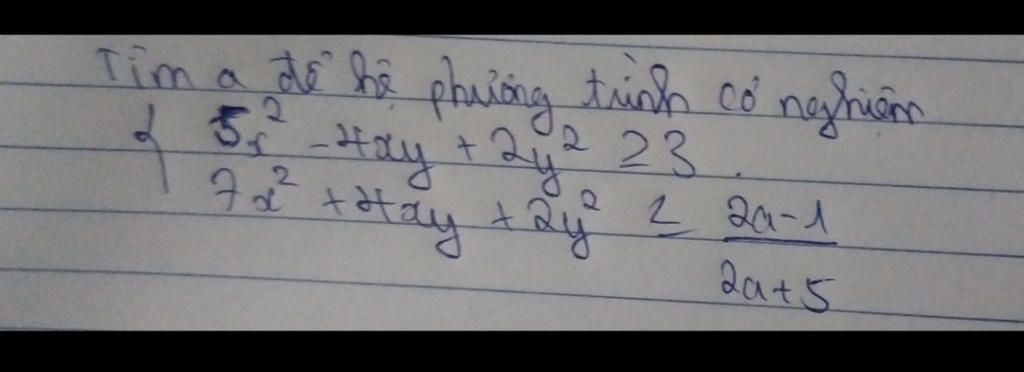 Tìm a để hệ phương trình có nghiệm
{ 5x² - 4xy + 2y² ≥ 3
7x² + 4xy + 2y² ≤ (2a-1)/(2a+5)